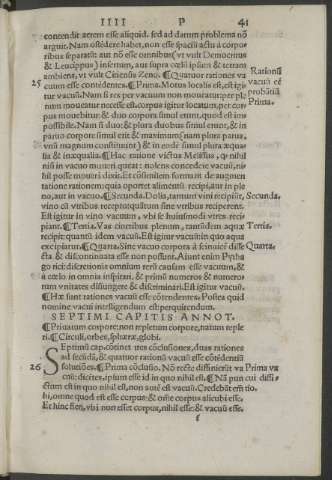 IIII P 41
contendit aerem esse aliquid. sed ad datum problema nō
arguit. Nam ostēdere habet, non esse spaciū actu à corpo-
ribus separatū: aut nō esse omnibus (vt vult Democritus
& Leucippus) insertum, aut supra cœlū ipsum & terram
ambiens, vt vult Citiensis Zeno. ¶Quatuor rationes va
25 cuum esse contendentes. ¶Prima. Motus localis est, est igi
tur vacuū. Nam si res per vacuum non moueatur: per ple
num moueatur necesse est. corpus igitur locatum, per cor-
pus mouebitur. & duo corpora simul erunt, quod est im-
possibile. Nam si duo: & plura duobus simul erunt, & in
paruo corpore simul erit & maximum (nam plura parua,
vnū magnum constituunt) & in eodē simul plura æqua-
lia & inæqualia. ¶Hac ratione victus Melissus, ꝙ nihil
nisi in vacuo moueri queat: nolens concedere vacuū, ni-
hil posse moueri dixit. Et cōsimilem formauit de augmen
tatione rationem: quia oportet alimentū recipi, aut in ple
no, aut in vacuo. ¶Secunda. Dolia, tantum vini recipiūt,
vino cū vtribus receptum, quātum sine vtribus reciperent.
Est igitur in vino vacuum, vbi se huiusmodi vtres reci-
piant. ¶Tertia. Vas cineribus plenum, tantūdem aquæ
recipit: quantū idem vacuū. Est igitur vacuū in quo aqua
excipiatur. ¶Quarta. Sine vacuo corpora à seinuicē disse-
cta & discontinuata esse non possunt. Aiunt enim Pytha
gorici: discretionis omnium rerū causam esse vacuum, &
à cœlo in omnia inspirari, & primū numeros & numero
rum vnitates distinguere & discriminari. Est igitur vacuū.
¶Hæ sunt rationes vacuū esse cōtendentes. Postea quid
nomine vacui intelligendum est: perquirendum.
Rationū
vacuū eē
probātiū
Prima.
Secunda.
Tertia.
Quarta.
SEPTIMI CAPITIS ANNOT.
¶Primatum corpore: non repletum corpore, natum reple
ri. ¶Circuli, orbes, sphæræ, globi.
Septimū cap. cōtinet tres cōclusiones, duas rationes
ad secūdā, & quatuor rationū vacuū esse cōtēdentiū
26 solutiōes. ¶Prima cōclusio. Nō recte diffinierūt va Prima va
cuū: dicētes, ipsum esse id in quo nihil est. ¶Nā pun cui diffi-
ctum est in quo nihil est, non autē est vacuū. Credebāt em̄ tio.
hi, omne quod est esse corpus: & oīne corpus alicubi esse.
Et hinc fieri, vbi non esset corpus, nihil esse: & vacuū esse.
f